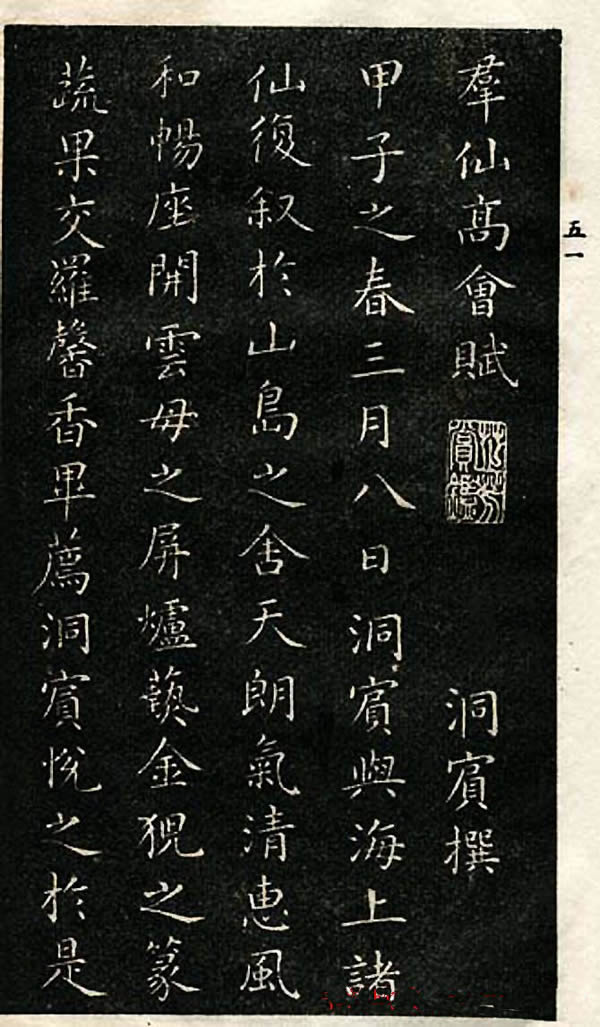 五一
羣仙髙會賦
洞賓撰
甲子之春三月八日洞賓與海上諸
仙復叙於山島之舍天朗氣清惠風
和暢座開雲母之屏爐爇金猊之篆
蔬果交羅馨香畢薦洞賓悅之於是